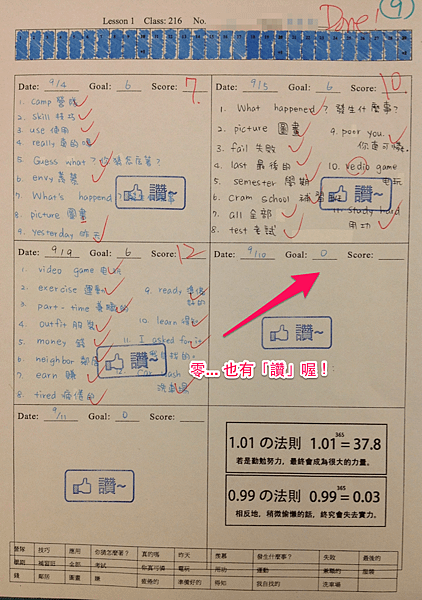 Lesson 1 Class: 216 No.
Done!
9
Date: 9/4 Goal: 6 Score: 7
1. camp 營隊
2. skill 技巧
3. use 使用
4. really 真的嗎
5. Guess what? 你猜怎麼著?
6. envy 羨慕
7. What's happend
8. picture 圖畫
9. yesterday 昨天
讚~
Date: 9/5 Goal: 6 Score: 10
1. What happened? 發生什麼事?
2. picture 圖畫
3. fail 失敗
4. last 最後的
5. semester 學期
6. cram school 補習班
7. all 全部
8. test 考試
9. poor you.
你真可憐.
10. vedio game
電玩
11. study hard
用功
讚~
Date: 9/9 Goal: 6 Score: 12
1. video game 電玩
2. exercise 運動
3. part-time 兼職的
4. outfit 服裝
5. money 錢
6. neighbor 鄰居
7. earn 賺
8. tired 疲倦的
9. ready 準備
好的
10. learn 得知
11. I asked for it
我自找的.
12. Car wash
洗車場
讚~
Date: 9/10 Goal: 0 Score:
讚~
零... 也有「讚」喔!
Date: 9/11 Goal: 0 Score:
讚~
1.01の法則 1.01^365 = 37.8
若是勤勉努力,最終會成為很大的力量。
0.99の法則 0.99^365 = 0.03
相反地,稍微偷懶的話,終究會失去實力。
營隊 技巧 應用 你猜怎麼著? 真的嗎 昨天 羨慕 發生什麼事? 失敗 最後的
學期 補習班 全部 考試 你真可憐 電玩 用功 運動 兼職的 服裝
錢 鄰居 圖畫 賺 疲倦的 準備好的 得知 我自找的 洗車場